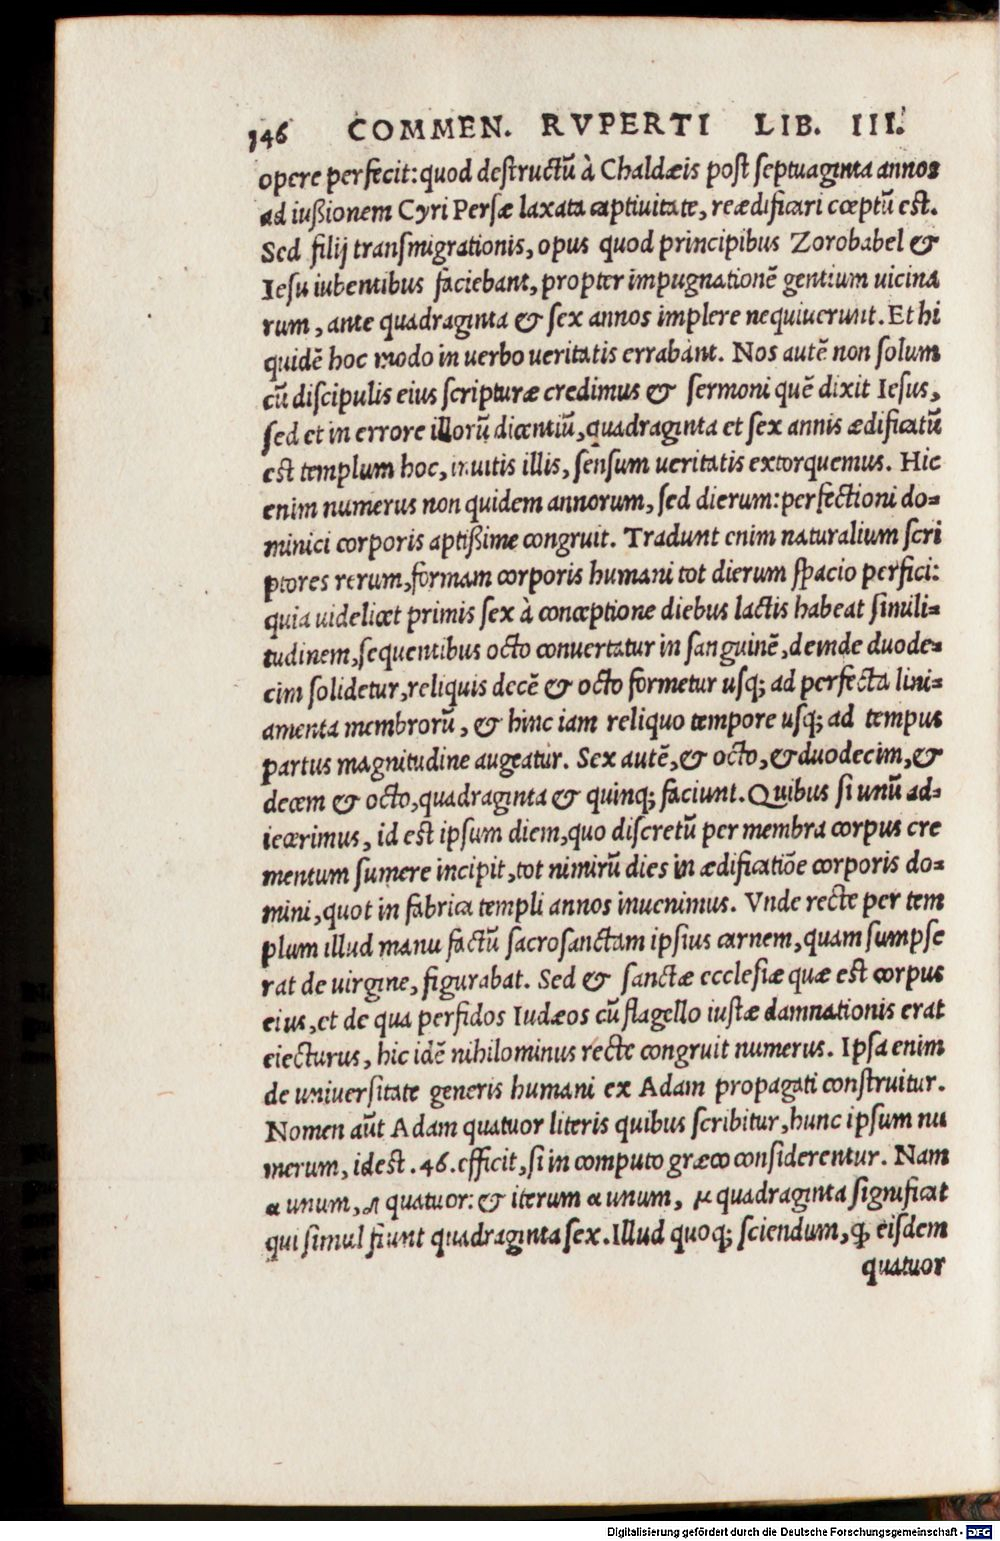 146 COMMEN. RVPERTI LIB. III.
opere perfecit: quod destructũ à Chaldæis post septuaginta annos
ad iußionem Cyri Persæ laxata captiuitate, reædificari cœptũ est.
Sed filij transmigrationis, opus quod principibus Zorobabel &
Iesu iubentibus faciebant, propter impugnationẽ gentium uicina
rum, ante quadraginta & sex annos implere nequiuerunt. Et hi
quidẽ hoc modo in uerbo ueritatis errabant. Nos autẽ non solum
cũ discipulis eius scripturæ credimus & sermoni quẽ dixit Iesus,
sed et in errore illorũ dicentiũ, quadraginta et sex annis ædificatũ
est templum hoc, inuitis illis, sensum ueritatis extorquemus. Hic
enim numerus non quidem annorum, sed dierum: perfectioni do=
minici corporis aptißime congruit. Tradunt enim naturalium scri
ptores rerum, formam corporis humani tot dierum spacio perfici:
quia uidelicet primis sex à conceptione diebus lactis habeat simili=
tudinem, sequentibus octo conuertatur in sanguinẽ, deinde duode=
cim solidetur, reliquis decẽ & octo formetur usq; ad perfecta lini=
amenta membrorũ, & hinc iam reliquo tempore usq; ad tempus
partus magnitudine augeatur. Sex autẽ, & octo, & duodecim, &
decem & octo, quadraginta & quinq; faciunt. Quibus si unũ ad=
iecerimus, id est ipsum diem, quo discretũ per membra corpus cre
mentum sumere incipit, tot nimirũ dies in ædificatiõe corporis do=
mini, quot in fabrica templi annos inuenimus. Vnde recte per tem
plum illud manu factũ sacrosanctam ipsius carnem, quam sumpse
rat de uirgine, figurabat. Sed & sanctæ ecclesiæ quæ est corpus
eius, et de qua perfidos Iudæos cũ flagello iustæ damnationis erat
eiecturus, hic idẽ nihilominus recte congruit numerus. Ipsa enim
de uniuersitate generis humani ex Adam propagati construitur.
Nomen aũt Adam quatuor literis quibus scribitur, hunc ipsum nu
merum, id est .46. efficit, si in computo græco considerentur. Nam
α unum, δ quatuor: & iterum α unum, μ quadraginta significat
qui simul fiunt quadraginta sex. Illud quoq; sciendum, ꝙ eisdem
quatuor
Digitalisierung gefördert durch die Deutsche Forschungsgemeinschaft - DFG